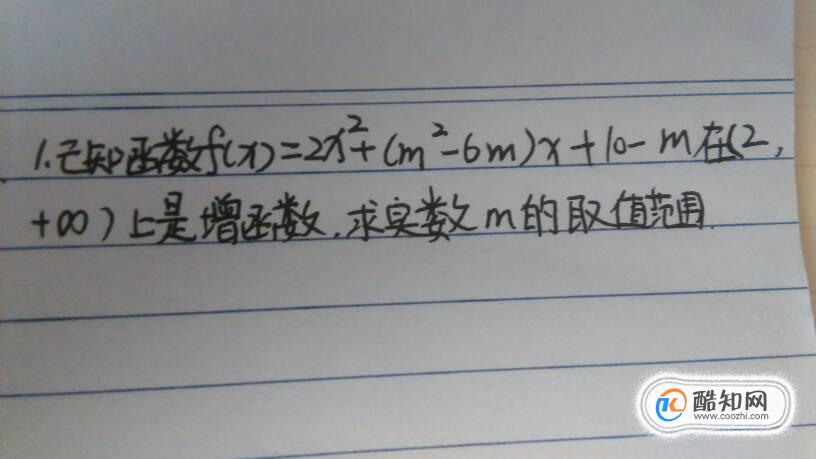 1.已知函数f(x)=2x²+(m²-6m)x+10-m在(2,
+∞)上是增函数,求实数m的取值范围.
酷知网
www.coozhi.com